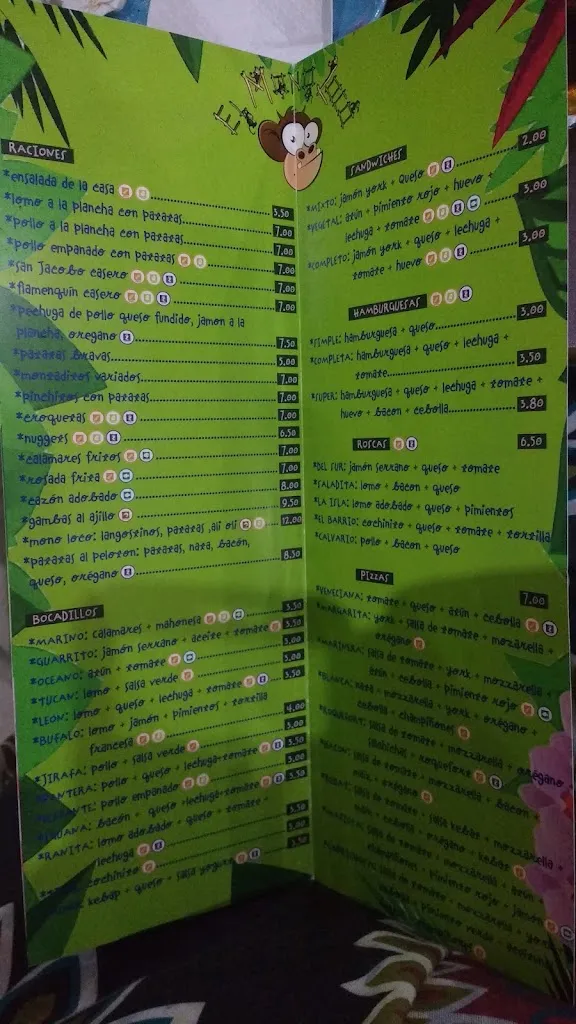 El Mono Loco
RACIONES
*ensalada de la casa 3.50
*lomo a la plancha con patatas 7.00
*pollo a la plancha con patatas 7.00
*pollo empanado con patatas 7.00
*san Jacobo casero 7.00
*flamenquin casero 7.00
*pechuga de pollo queso fundido, jamon a la
plancha, oregano 7.50
*patatas bravas 5.00
*montaditos variados 7.00
*pinchitos con patatas 7.00
*croquetas 7.00
*nuggets 6.50
*calamares fritos 7.00
*rosada frita 7.00
*cazón adobado 8.00
*gambas al ajillo 9.50
*mono loco: langostinos, patatas, ali oli 12.00
*patatas al peloton: patatas, nata, bacón,
queso, orégano 8.50
BOCADILLOS
*MARINO: calamares + mahonesa 3.50
*GUARRITO: jamón serrano + aceite + tomate 3.50
*OCEANO: atún + tomate 3.00
*TUCAN: lomo + salsa verde 3.00
*LEON: lomo + queso + lechuga + tomate 3.50
*BUFALO: lomo + jamón + pimientos + tortilla
francesa 4.00
*JIRAFA: pollo + salsa verde 3.00
*PANTERA: pollo + queso + lechuga+tomate 3.50
pollo empanado 3.00
*IGUANA: bacón + queso +lechuga+tomate 3.50
*RANITA: lomo adobado + queso + tomate +
lechuga 3.50
cochinito 3.00
kebap + queso + salsa yogurt 3.50
SANDWICHES
*MIXTO: jamón york + queso 2.00
*VEGETAL: atún + pimiento rojo + huevo +
lechuga + tomate 3.00
*COMPLETO: jamón york + queso + lechuga +
tomate + huevo 3.00
HAMBURGUESAS
*SIMPLE: hamburguesa + queso 3.00
*COMPLETA: hamburguesa + queso + lechuga +
tomate 3.50
*SUPER: hamburguesa + queso + lechuga + tomate +
huevo + bacon + cebolla 3.80
ROSCAS 6.50
*DEL SUR: jamón serrano + queso + tomate
*SALADITA: lomo + bacon + queso
*LA ISLA: lomo adobado + queso + pimientos
*EL BARRIO: cochinito + queso + tomate + tortilla
*CALVARIO: pollo + bacon + queso
PIZZAS 7.00
*VENECIANA: tomate + queso + atún + cebolla
*MARGARITA: york + salsa de tomate + mozarella +
orégano
*MARIMBA: salsa de tomate + york + mozzarella +
atún + cebolla + pimiento rojo
*BLANCA: nata + mozzarella + york + orégano +
cebolla + champiñones
*ROQUEFORT: salsa de tomate + mozzarella + orégano
salchichas + roquefort
*BACON: salsa de tomate + mozzarella + bacon +
orégano
salsa de tomate + salsa kebab + mozzarella +
cebolla + orégano + kebab
salsa de tomate + mozzarella + atún +
champiñones + pimiento rojo + jamón
salsa de tomate + mozzarella + york
pimiento verde